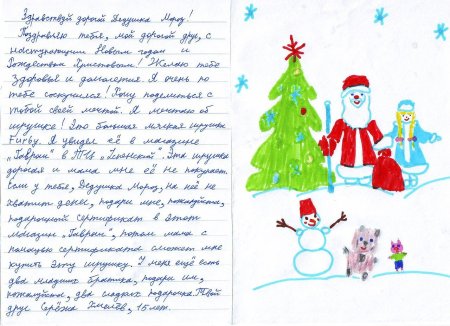 Здравствуй дорогой Дедушка Мороз!
Поздравляю тебя, мой дорогой друг, с
наступающим Новым годом и
Рождеством Христовым! Желаю тебе
здоровья и долголетия. Я очень по
тебе соскучился! Хочу поделиться с
тобой своей мечтой. Я мечтаю об
игрушке! Это большая мягкая игрушка
Furby. Я увидел её в магазине
„Бавран" в ТЦ Эта игрушка
дорогая и мама мне её не покупает.
Если у тебя, Дедушка Мороз, на неё не
хватит денег, подари мне, пожалуйста,
подарочный сертификат в этот
магазин потом мама с
помощью сертификата сможет мне
купить эту игрушку. У меня ещё есть
два младших братика, подари им,
пожалуйста, два сладких подарочка. Твой
друг Серёжа 15 лет.